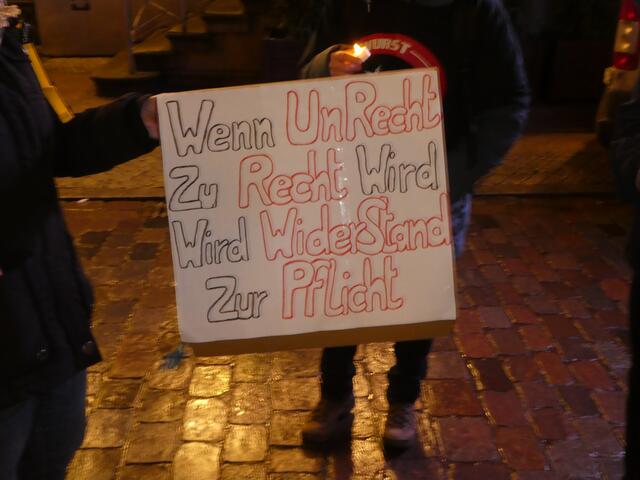 WURST
Wenn UnRecht
Zu Recht Wird
Wird WiderStand
Zur PfLicht